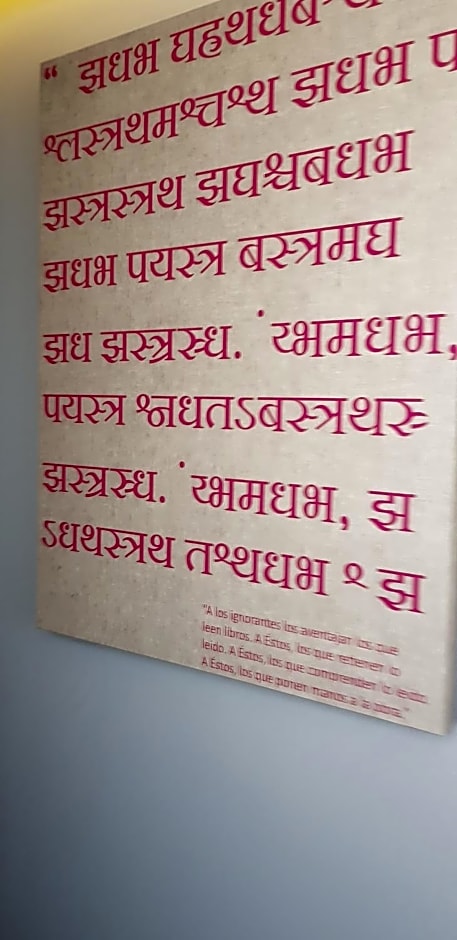 “ झधभ घहथधब
श्लस्त्रथमश्चश्थ झधभ प
झस्त्रस्त्रथ झघश्चबधभ
झधभ पयस्त्र बस्त्रमघ
झध झस्त्रस्ध. ं य्भमधभ,
पयस्त्र श्नधतऽबस्त्रथरु
झस्त्रस्ध. ं य्भमधभ, झ
ऽधथस्त्रथ तश्थधभ झ
"A los ignorantes los aventajan los que
leen libros. A Éstos, los que retienen lo
leido. A Éstos, los que comprenden lo leido.
A Éstos, los que ponen manos a la obra."